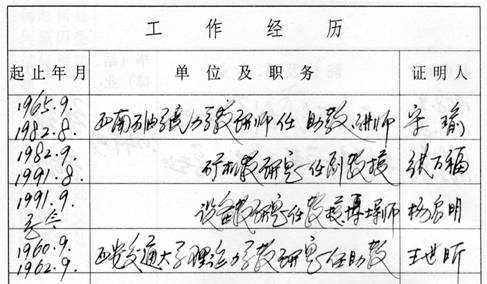 工作经历
起止年月 单位及职务 证明人
1965.9.
1982.8. 西南石油学院力学教研师任 助教、讲师 宋瑜
1982.9.
1991.8. 矿机教研室任副教授 张万福
1991.9.
至今 设备教研室任教授博导师 杨启明
1960.9.
1962.9. 西安交通大学理论力学教研室任助教 王世昕